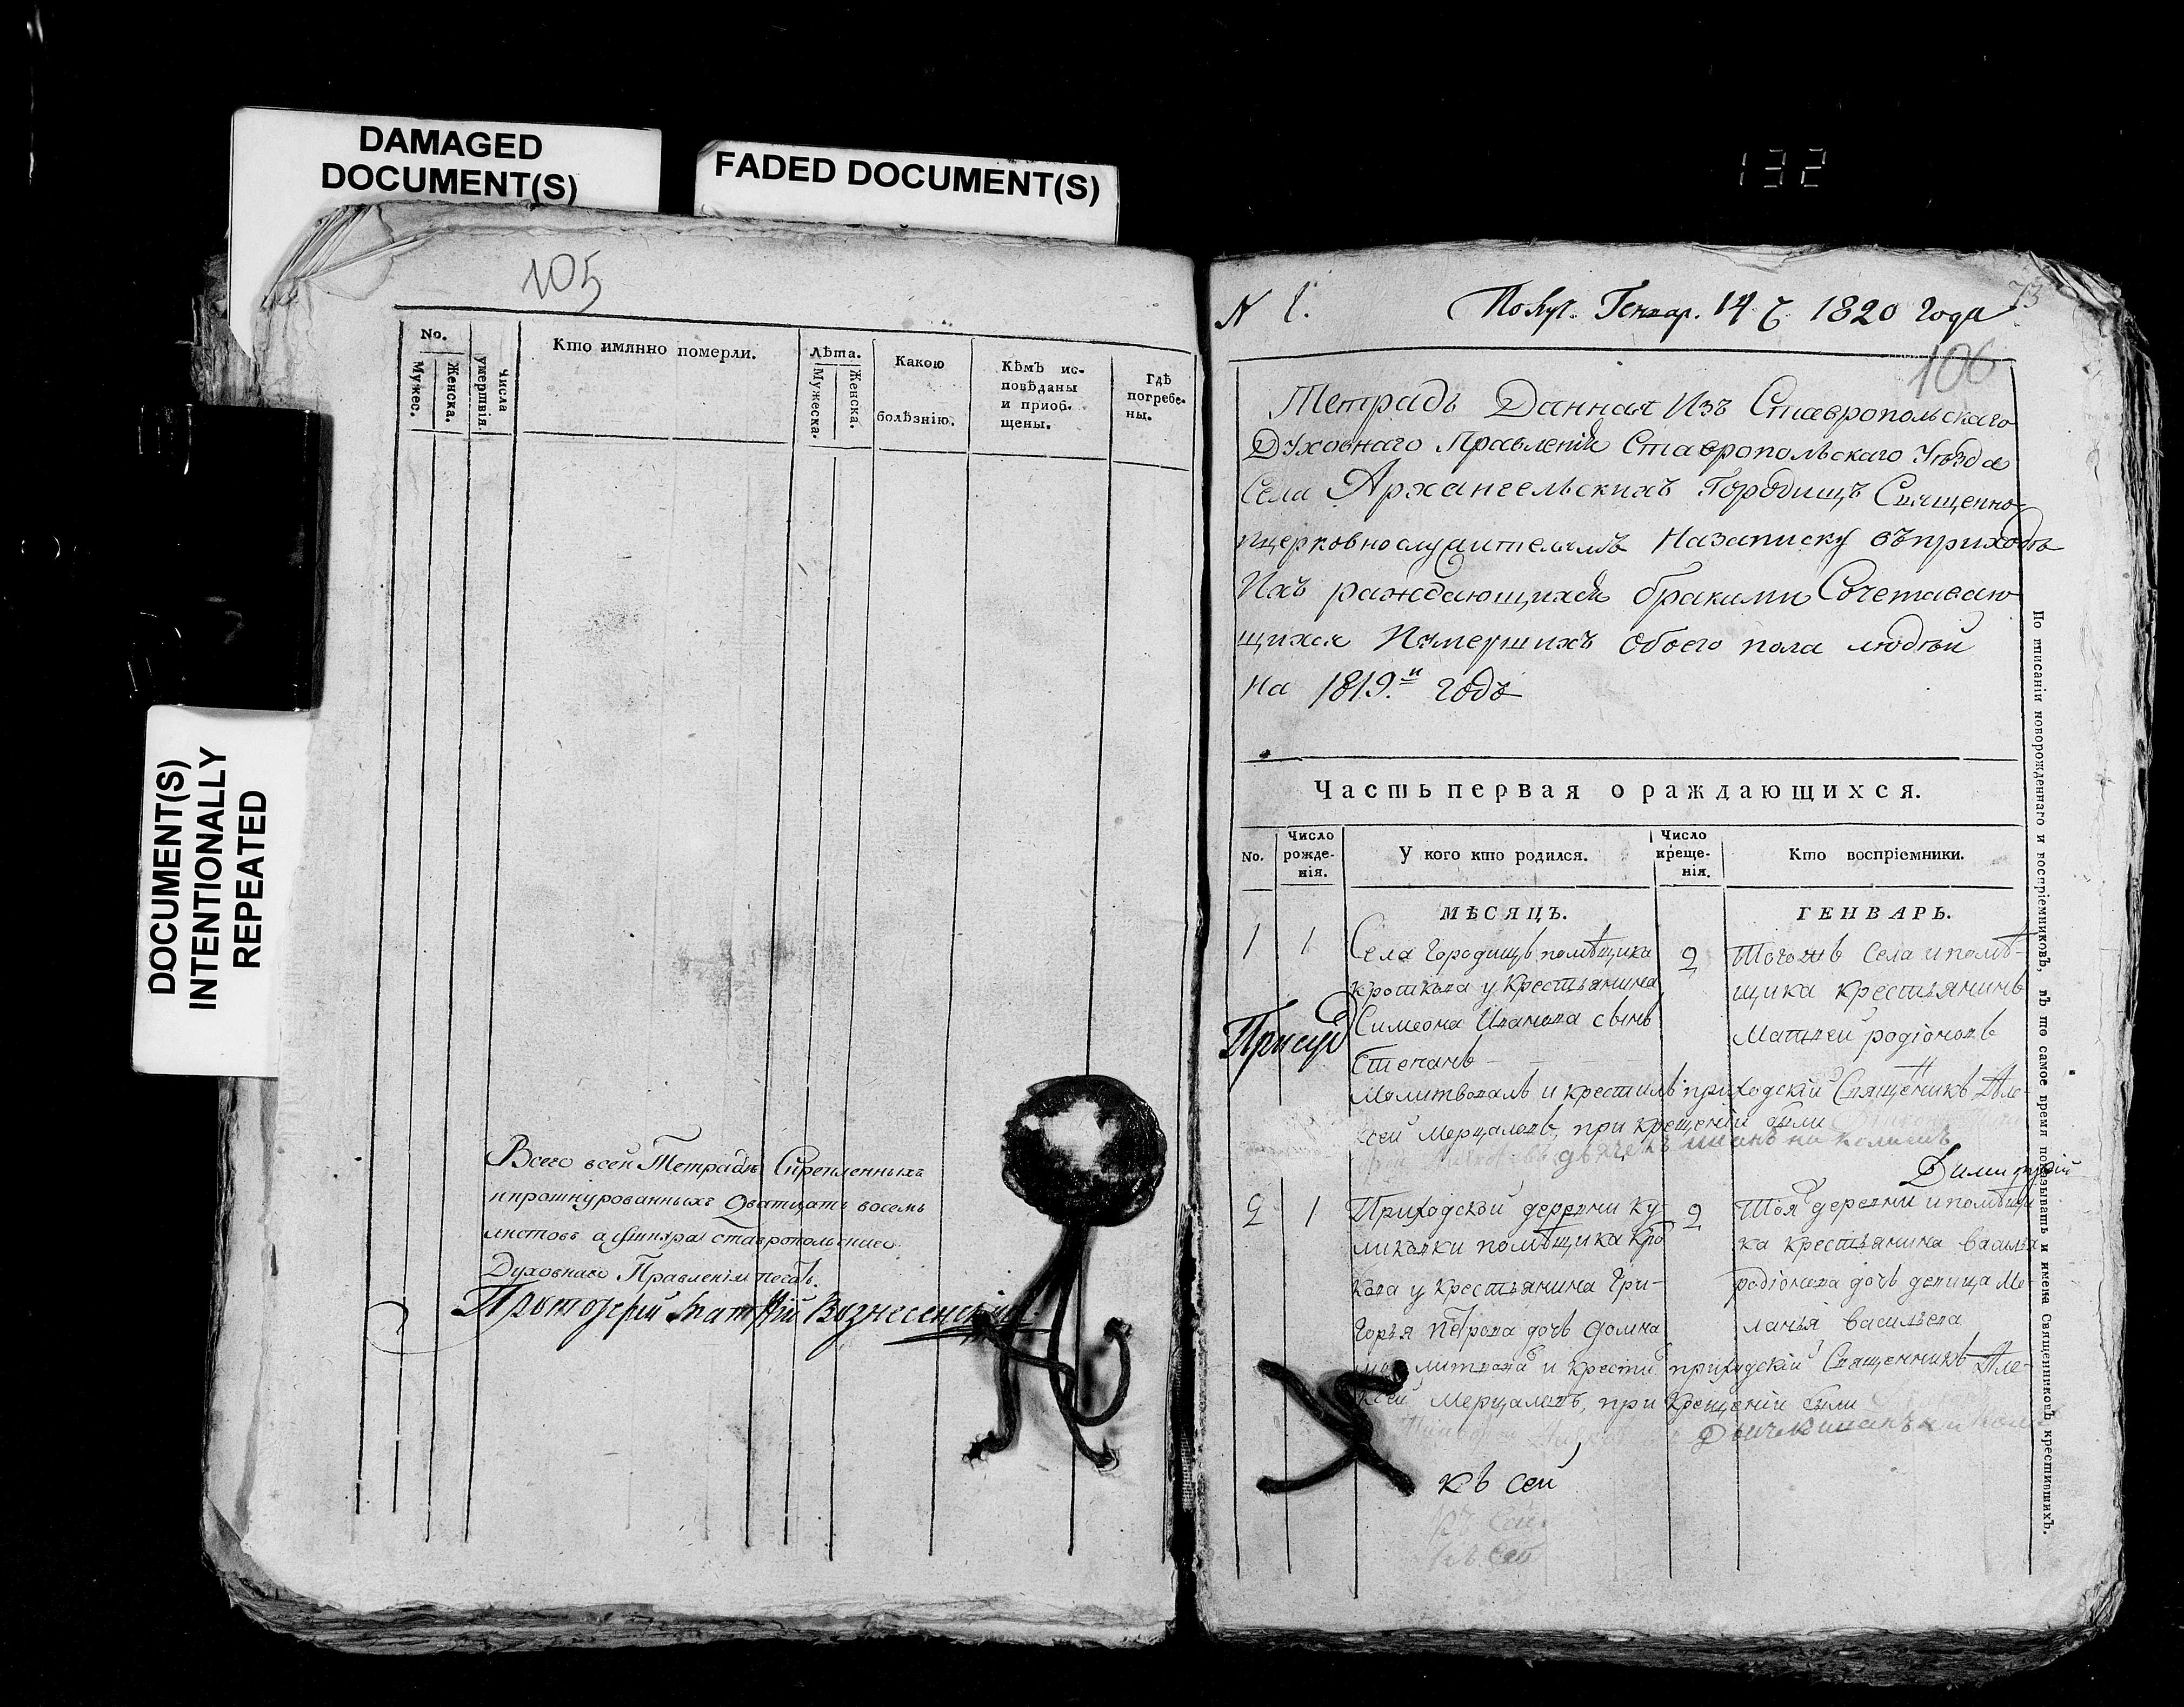 DAMAGED
DOCUMENT(S)
FADED DOCUMENT(S)
DOCUMENT(S)
INTENTIONALLY
REPEATED
132
105
No.
Мужес.
Женска.
Числа умертвія.
Кто имянно померли.
Лѣта.
Мужеска.
Женска.
Какою
болѣзнію.
Кѣмъ ис-
повѣданы
и приоб-
щены.
Гдѣ
погребе-
ны.
Всего всей Тетради Скрепленныхъ
ипрошнурованныхъ Дватцать восемь
листовъ
Духовнаго Правленія печать.
Протоіерей Вознесенскій
N 1. Получ. Генвар. 14 1820 Года
73
106
Тетрадь Данная Изъ Ставропольскаго
Духовнаго Правленія Ставропольскаго Уѣзда
Села Архангельскихъ Городищъ Священно
ицерковнослужителямъ Назаписку въприходѣ
Ихъ раждающихся браками Сочетаваю
щихся Иумершихъ Обоего пола людѣй
На 1819.й годъ
Часть первая о раждающихся.
No.
Число
рожде-
нія.
У кого кто родился.
Число
креще-
нія.
Кто воспріемники.
МѢСЯЦЪ. ГЕНВАРЬ.
1 1 Села Городищъ помѣщика
Кроткова у Крестьянина
Симеона Иванова сынъ
Степанъ
2 Тогожъ Села и помѣ-
щика крестьянинъ
Матвеи родіоновъ
Молитвовалъ и крестилъ приходскій Священникъ Але-
ксей Мерцаловъ, при крещеніи были
Димитрій
2 1 Приходской деревни Ку-
ликовки помѣщика Кро
кова у Крестьянина Гри-
горья Петрова дочь Домна
2 Тоя деревни ипомѣщи
ка крестьянина василья
родіонова дочь девица Ме
ланья васильева
и крести приходскій Священникъ Але-
ксей Мерцаловъ, при Крещеніи были
Къ сей
къ сей
къ сей
По вписаніи новорожденнаго и воспріемниковъ, въ то самое время показывать и имена Священниковъ крестившихъ.